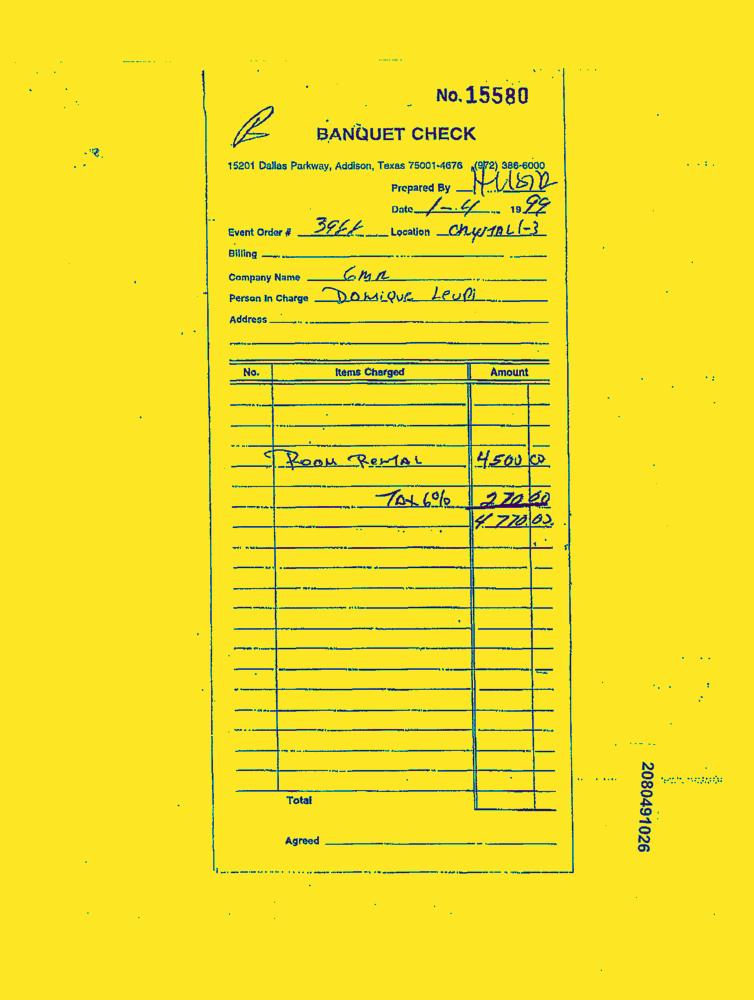 No. 15580
BANQUET CHECK
15201 Dallas Parkway, Addison, Texas 75001-4676 (972) 386-6000
Prepared By
Date 1-4 1999
Event Order # Location Crystal 1-3
Billing
Company Name GMR
Person In Charge Domique Leupi
Address
No. Items Charged Amount
Room Rental 4500 00
Tax 6% 270 00
4770 00
Total
Agreed
2080491026